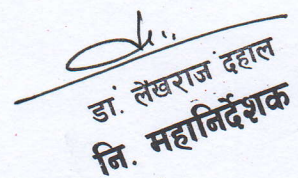 डां. लेखराज दहाल
नि. महानिर्देशक